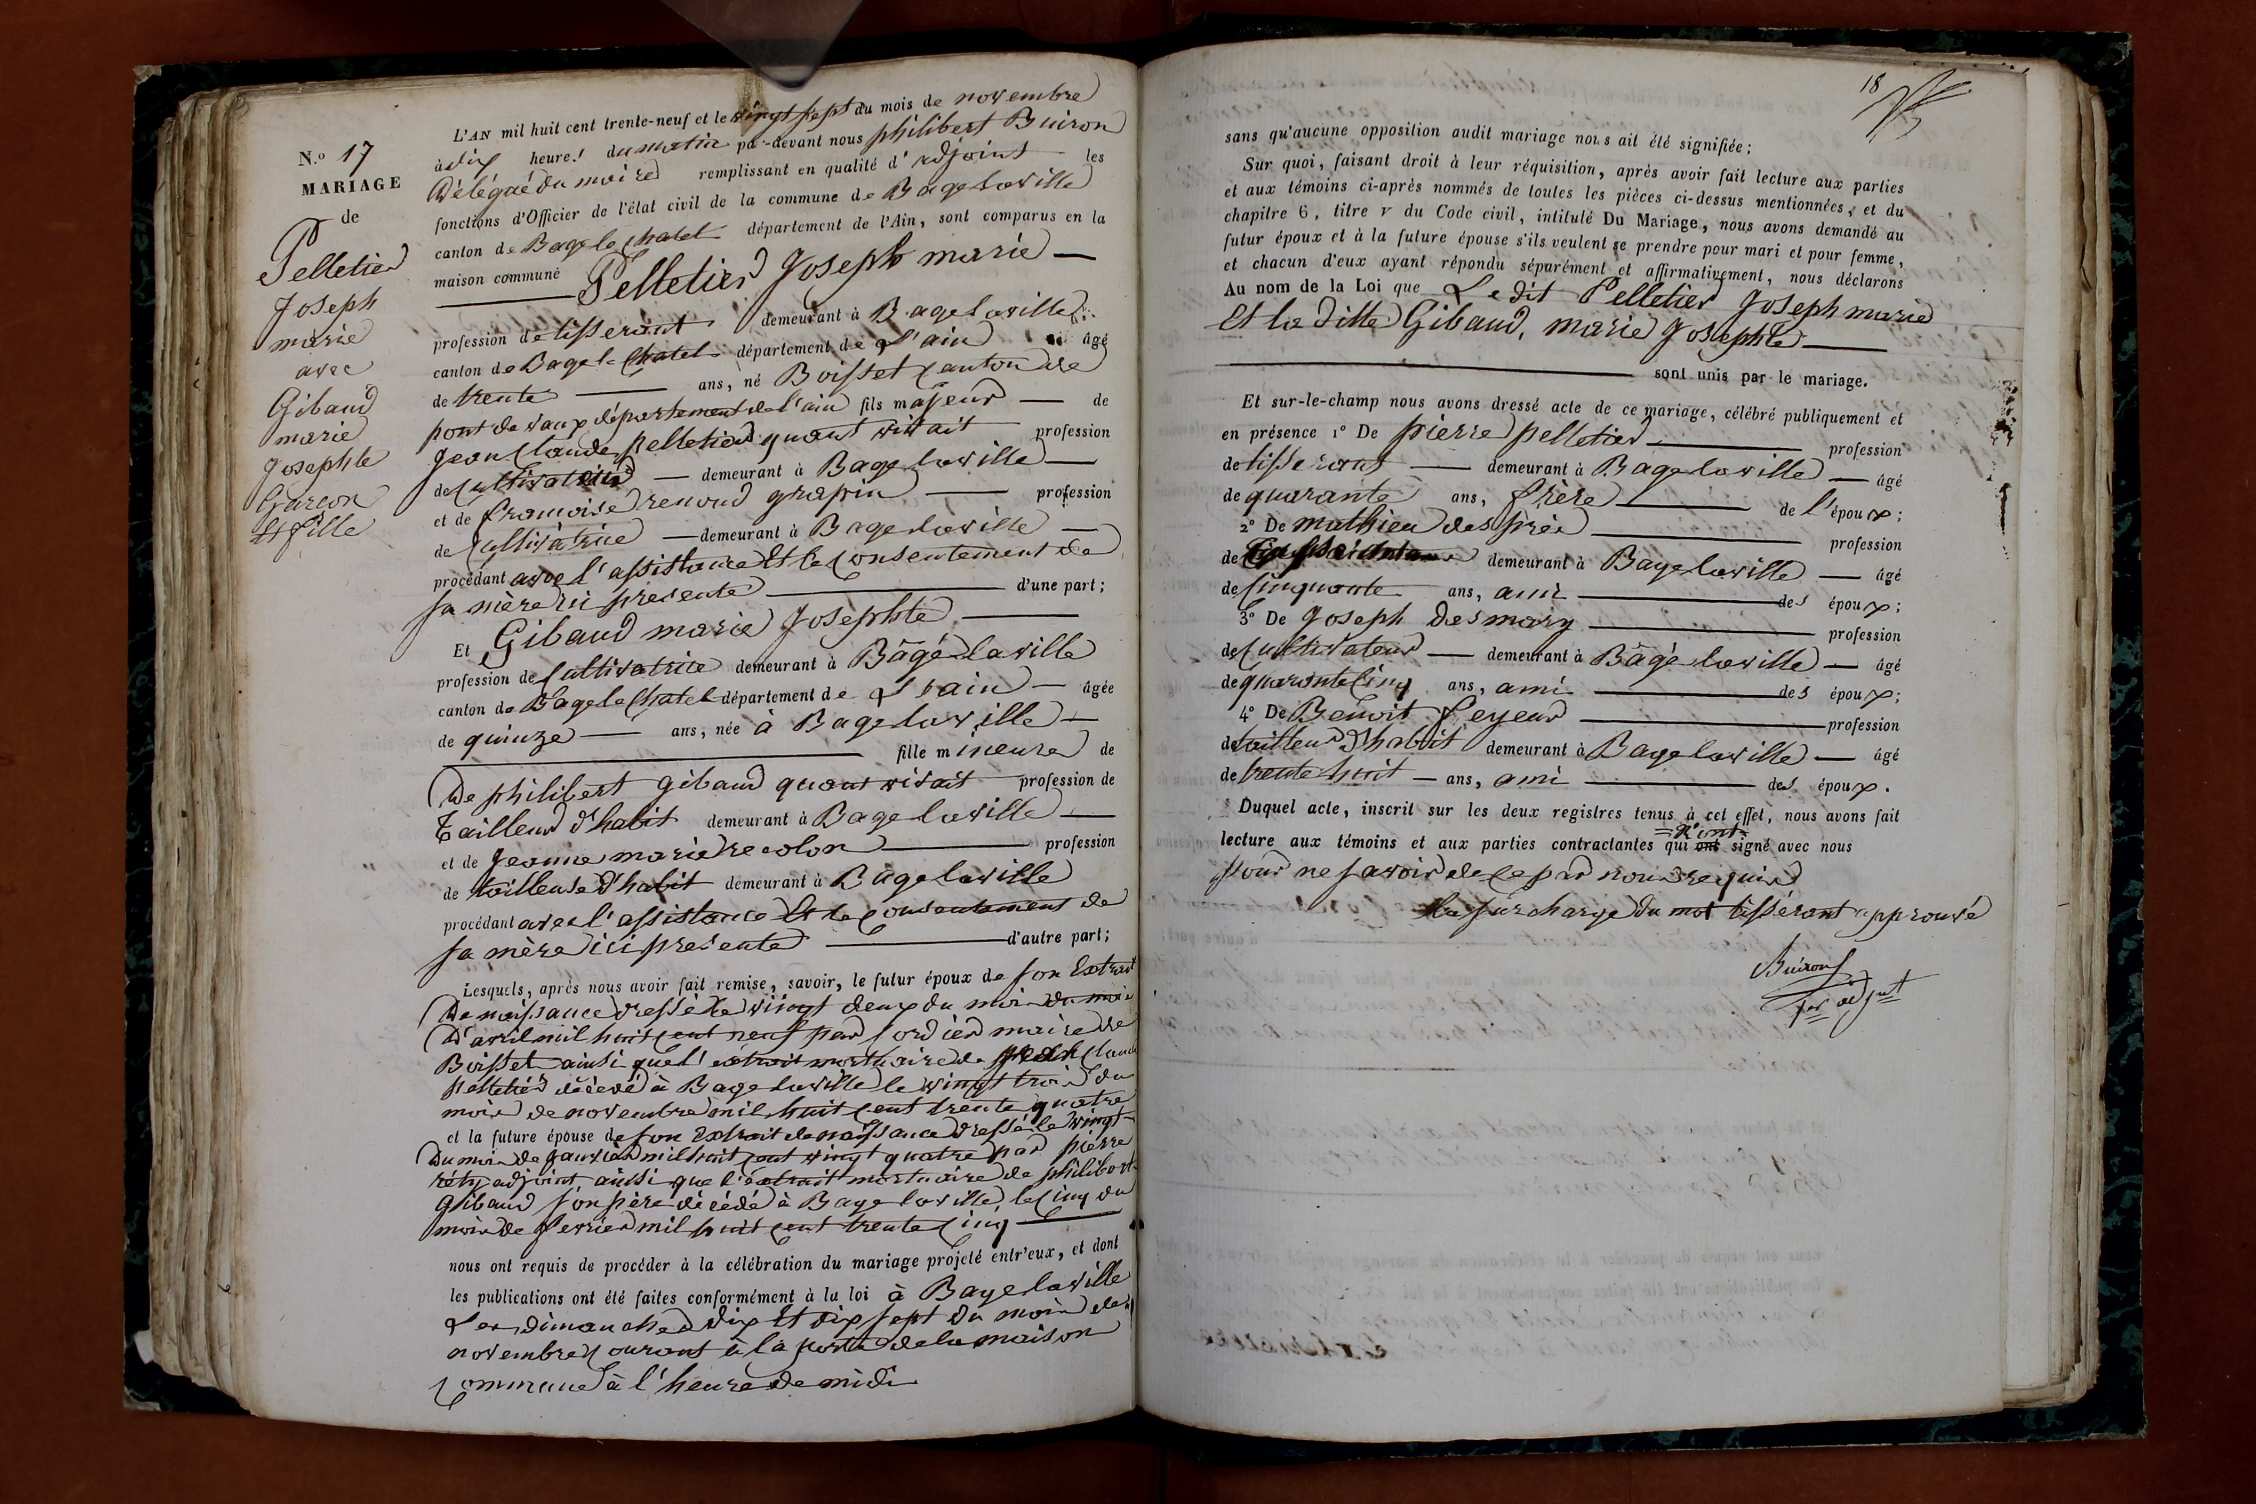 N.º 17
MARIAGE
de
Pelletier
Joseph
marie
avec
Gibaud
marie
Josephte
Garçon
et fille
L'AN mil huit cent trente-neuf et le vingt sept du mois de novembre
à dix heures du matin par-devant nous philibert Buiron
Délégué du maire remplissant en qualité d'adjoint les
fonctions d'Officier de l'état civil de la commune de Bagelaville
canton de Bagelechatel département de l'Ain, sont comparus en la
maison commune Pelletier Joseph marie
profession de tisserant demeurant à Bagelaville
canton de Bagelechatel département de L'ain âgé
de trente ans, né Boisset canton de
pont de vaux département de l'ain fils majeur de
Jean Claude pelletier quant vivait profession
de Cultivateur demeurant à Bagelaville
et de francoise renoud grapin profession
de Cultivatrice demeurant à Bagelaville
procédant avec l'assistance Et le Consentement de
sa mère ici presente d'une part;
Et Gibaud marie Josephte
profession de Cultivatrice demeurant à Bâgé laville
canton de Bagelechatel département de L'ain âgée
de quinze ans, née à Bagelaville
fille mineure de
De philibert gibaud quant vivait profession de
Tailleur d'habit demeurant à Bagelaville
et de Jeanne marie recolon profession
de tailleuse d'habit demeurant à Bagelaville
procédant avec l'assistance Et le Consentement de
sa mère ici presente d'autre part;
Lesquels, après nous avoir fait remise, savoir, le futur époux de son Extrait
De naissance dressé le vingt deux du mois du mois
D'avril mil huit cent neuf par Cordier maire de
Boisset ainsi que l'extrait mortuaire de jean Claude
pelletier décédé à Bagelaville le vingt trois du
mois de novembre mil huit cent trente quatre
et la future épouse de son Extrait de naissance dressé le vingt
Du mois de janvier mil huit cent vingt quatre par pierre
réty adjoint ainsi que l'extrait mortuaire de philibert
Gibaud son père décédé à Bagelaville le Cinq du
mois de fevrier mil huit cent trente Cinq
nous ont requis de procéder à la célébration du mariage projeté entr'eux, et dont
les publications ont été faites conformément à la loi à Bagelaville
Les dimanches dix Et dix sept du mois de
novembre Courant à la porte de la maison
Commune à l'heure de midi
18
sans qu'aucune opposition audit mariage nous ait été signifiée;
Sur quoi, faisant droit à leur réquisition, après avoir fait lecture aux parties
et aux témoins ci-après nommés de toutes les pièces ci-dessus mentionnées, et du
chapitre 6, titre v du Code civil, intitulé Du Mariage, nous avons demandé au
futur époux et à la future épouse s'ils veulent se prendre pour mari et pour femme,
et chacun d'eux ayant répondu séparément et affirmativement, nous déclarons
Au nom de la Loi que Le dit Pelletier Joseph marie
Et la ditte Gibaud, marie Josephte
sont unis par le mariage.
Et sur-le-champ nous avons dressé acte de ce mariage, célébré publiquement et
en présence 1º De pierre pelletier profession
de tisserant demeurant à Bagelaville âgé
de quarante ans, frère de l'époux;
2º De mathieu desprès profession
de demeurant à Bagelaville âgé
de Cinquante ans, ami des époux;
3º De Joseph Desmary profession
de Cultivateur demeurant à Bâgé laville âgé
de quarante Cinq ans, ami des époux;
4º De Benoit feyeur profession
de tailleur d'habit demeurant à Bagelaville âgé
de trente huit ans, ami des époux.
Duquel acte, inscrit sur les deux registres tenus à cet effet, nous avons fait
=n'ont=
lecture aux témoins et aux parties contractantes qui ont signé avec nous
pour ne savoir de ce par nous requis
la surcharge du mot tisserant approuvé
Buiron
adjut